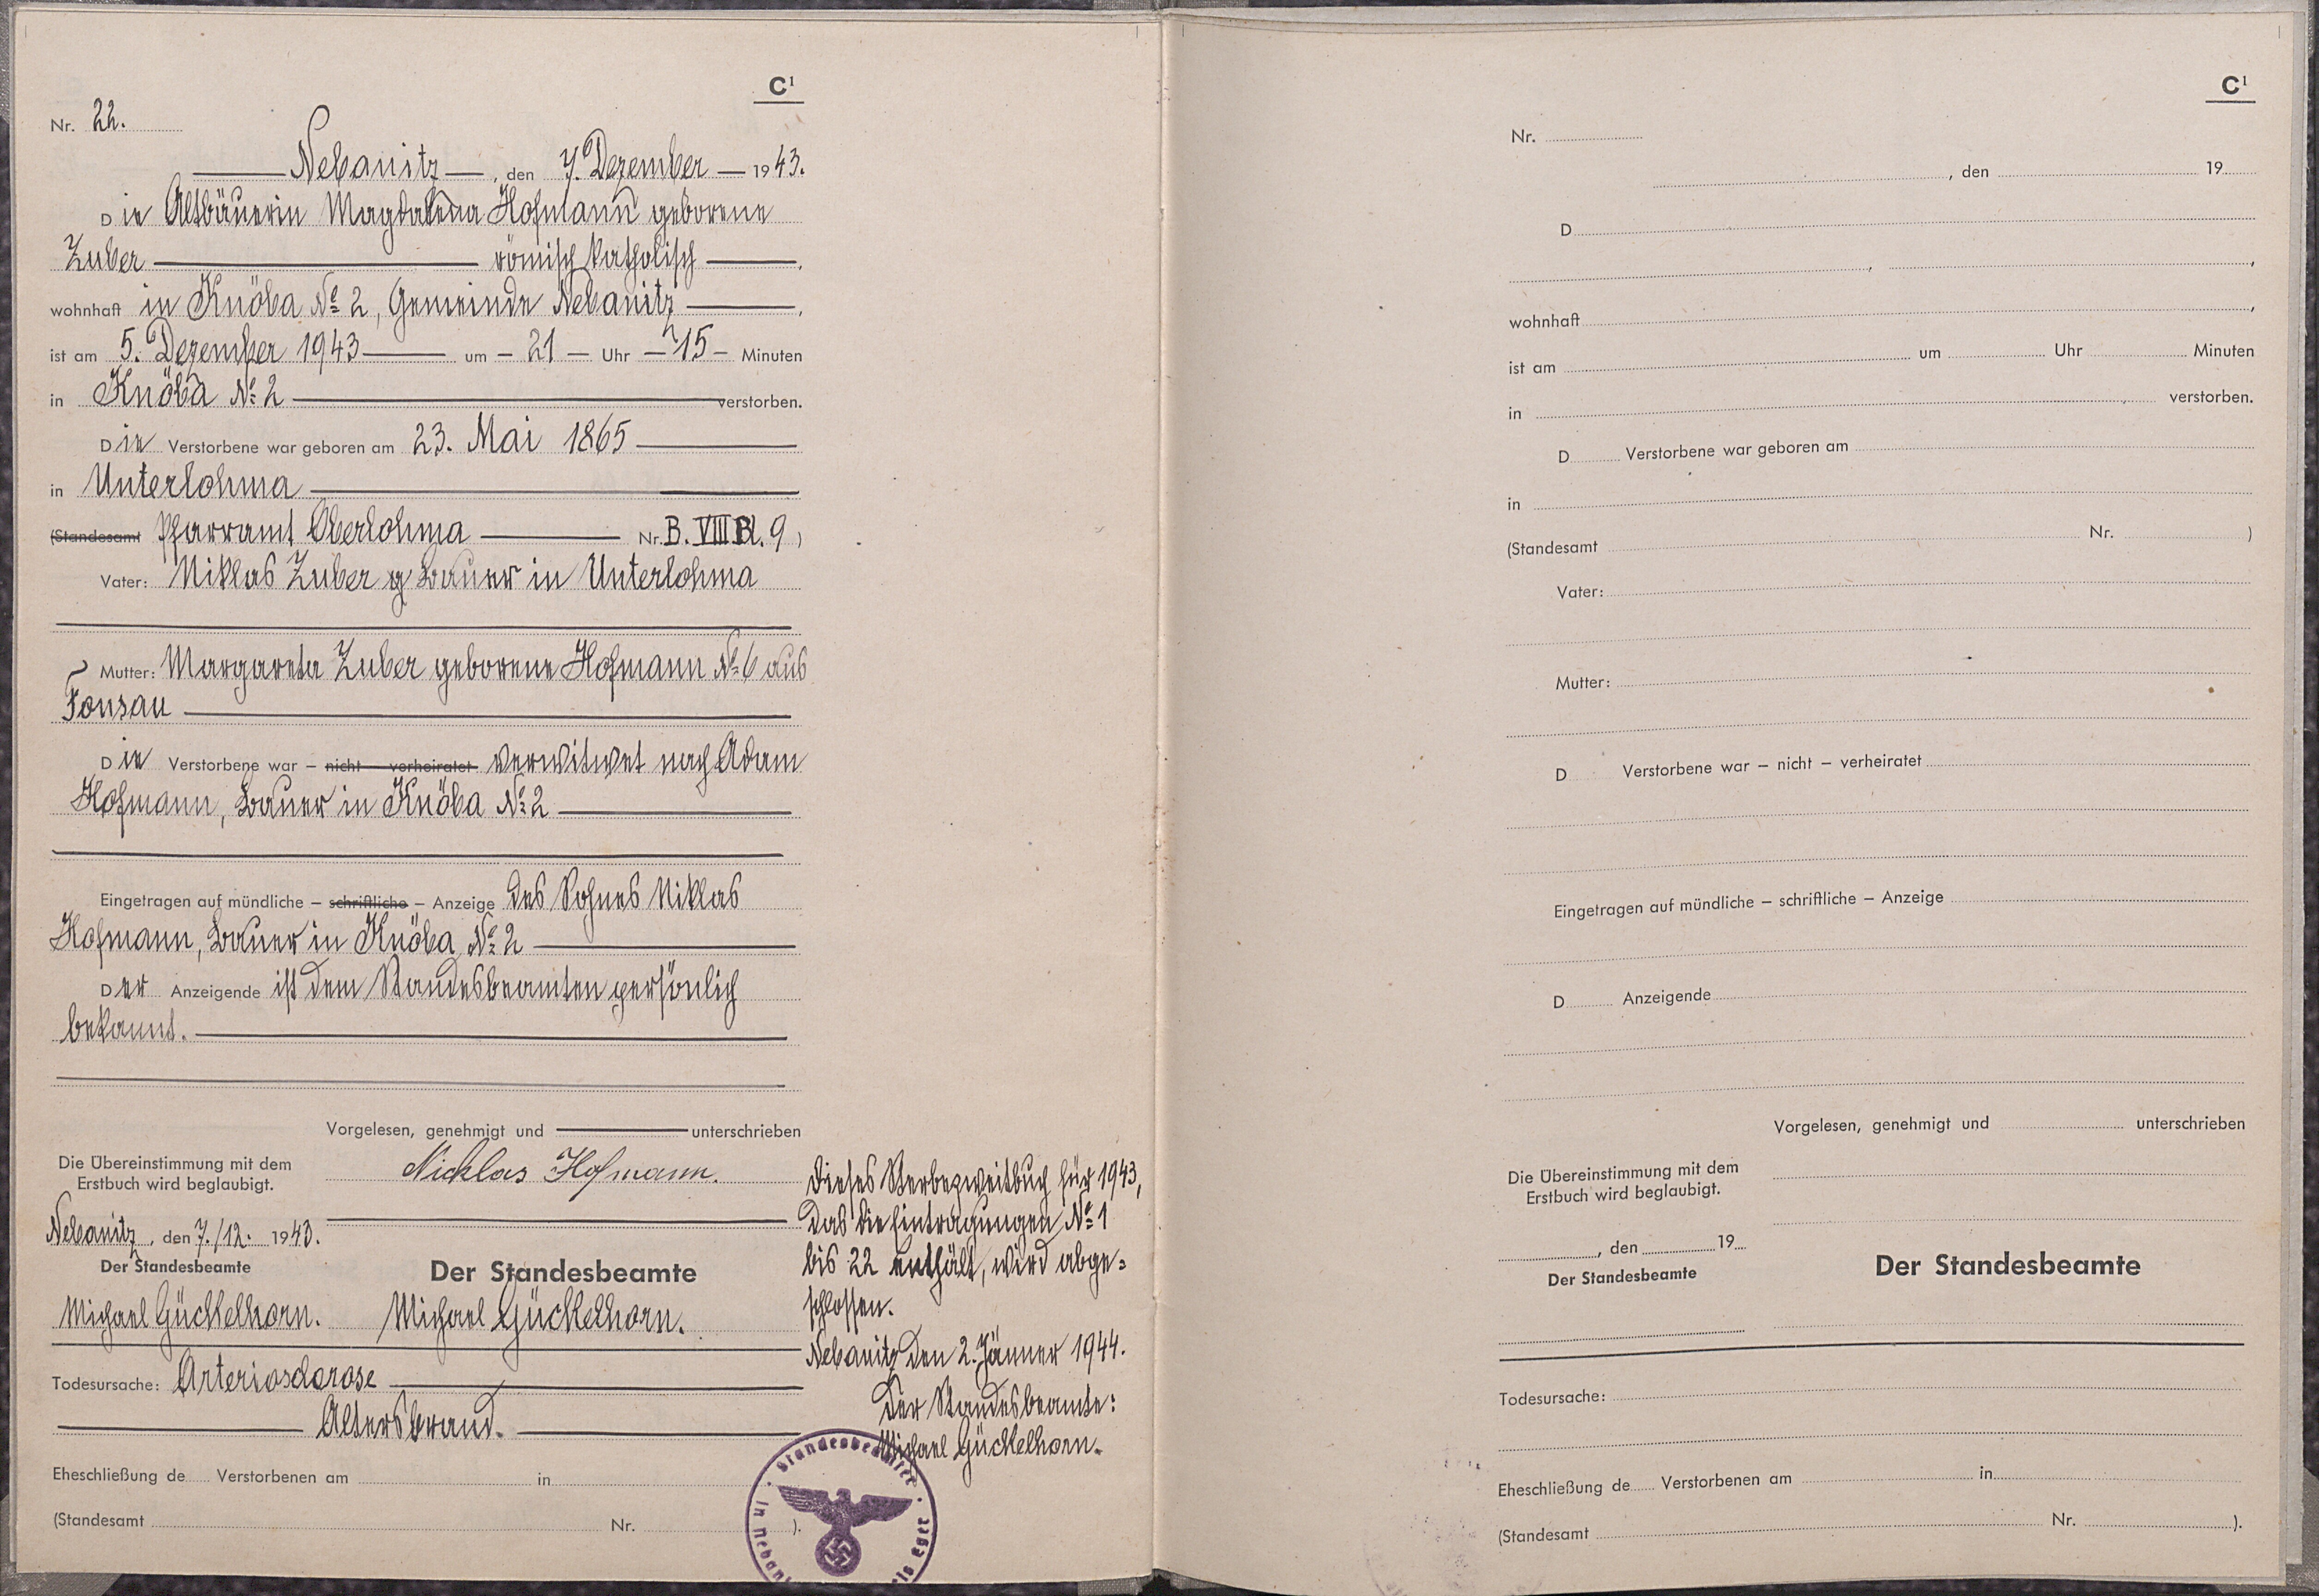 C¹
Nr. 22.
Nebanitz, den 7. Dezember 1943.
Die Altbäuerin Magdalena Hofmann geborene
Zuber römisch katholisch,
wohnhaft in Knöba № 2, Gemeinde Nebanitz,
ist am 5. Dezember 1943 um – 21 – Uhr – 15 – Minuten
in Knöba № 2 verstorben.
Die Verstorbene war geboren am 23. Mai 1865
in Unterlohma
(Standesamt Pfarramt Oberlohma Nr. B. VIII Bl. 9)
Vater: Niklas Zuber Bauer in Unterlohma
Mutter: Margareta Zuber geborene Hofmann № 6 aus
Fonsau
Die Verstorbene war – nicht – verheiratet verwitwet nach Adam
Hofmann, Bauer in Knöba № 2
Eingetragen auf mündliche – schriftliche – Anzeige des Sohnes Niklas
Hofmann, Bauer in Knöba № 2
Der Anzeigende ist dem Standesbeamten persönlich
bekannt.
Vorgelesen, genehmigt und unterschrieben
Die Übereinstimmung mit dem
Erstbuch wird beglaubigt.
Nicklas Hofmann.
Nebanitz, den 7./12. 1943.
Der Standesbeamte
Der Standesbeamte
Michael Gückelhorn.
Michael Gückelhorn.
Todesursache: Arteriosclorose
Altersbrand.
Eheschließung de Verstorbenen am in
(Standesamt Nr. ).
Dieses Sterbezweitbuch für 1943,
das die Eintragungen № 1
bis 22 enthält, wird abge=
schlossen.
Nebanitz den 2. Jänner 1944.
Der Standesbeamte:
Michael Gückelhorn.
Standesbeamter
in Neban
Eger
C¹
Nr.
, den 19
D
,
,
wohnhaft ,
ist am um Uhr Minuten
in verstorben.
D Verstorbene war geboren am
in
(Standesamt Nr. )
Vater:
Mutter:
D Verstorbene war – nicht – verheiratet
Eingetragen auf mündliche – schriftliche – Anzeige
D Anzeigende
Vorgelesen, genehmigt und unterschrieben
Die Übereinstimmung mit dem
Erstbuch wird beglaubigt.
, den 19
Der Standesbeamte
Der Standesbeamte
Todesursache:
Eheschließung de Verstorbenen am in
(Standesamt Nr. ).